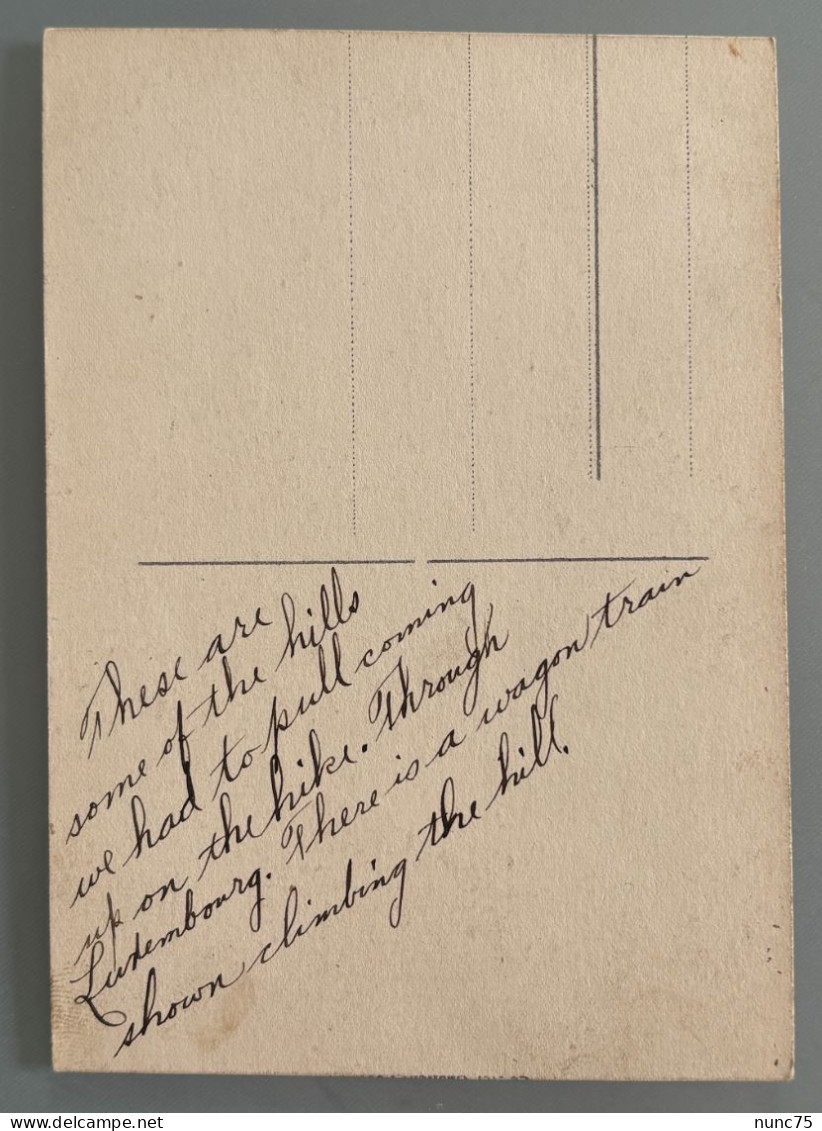 These are
some of the hills
we had to pull coming
up on the hike. Through
Luxembourg. There is a wagon train
shown climbing the hill.
nunc75